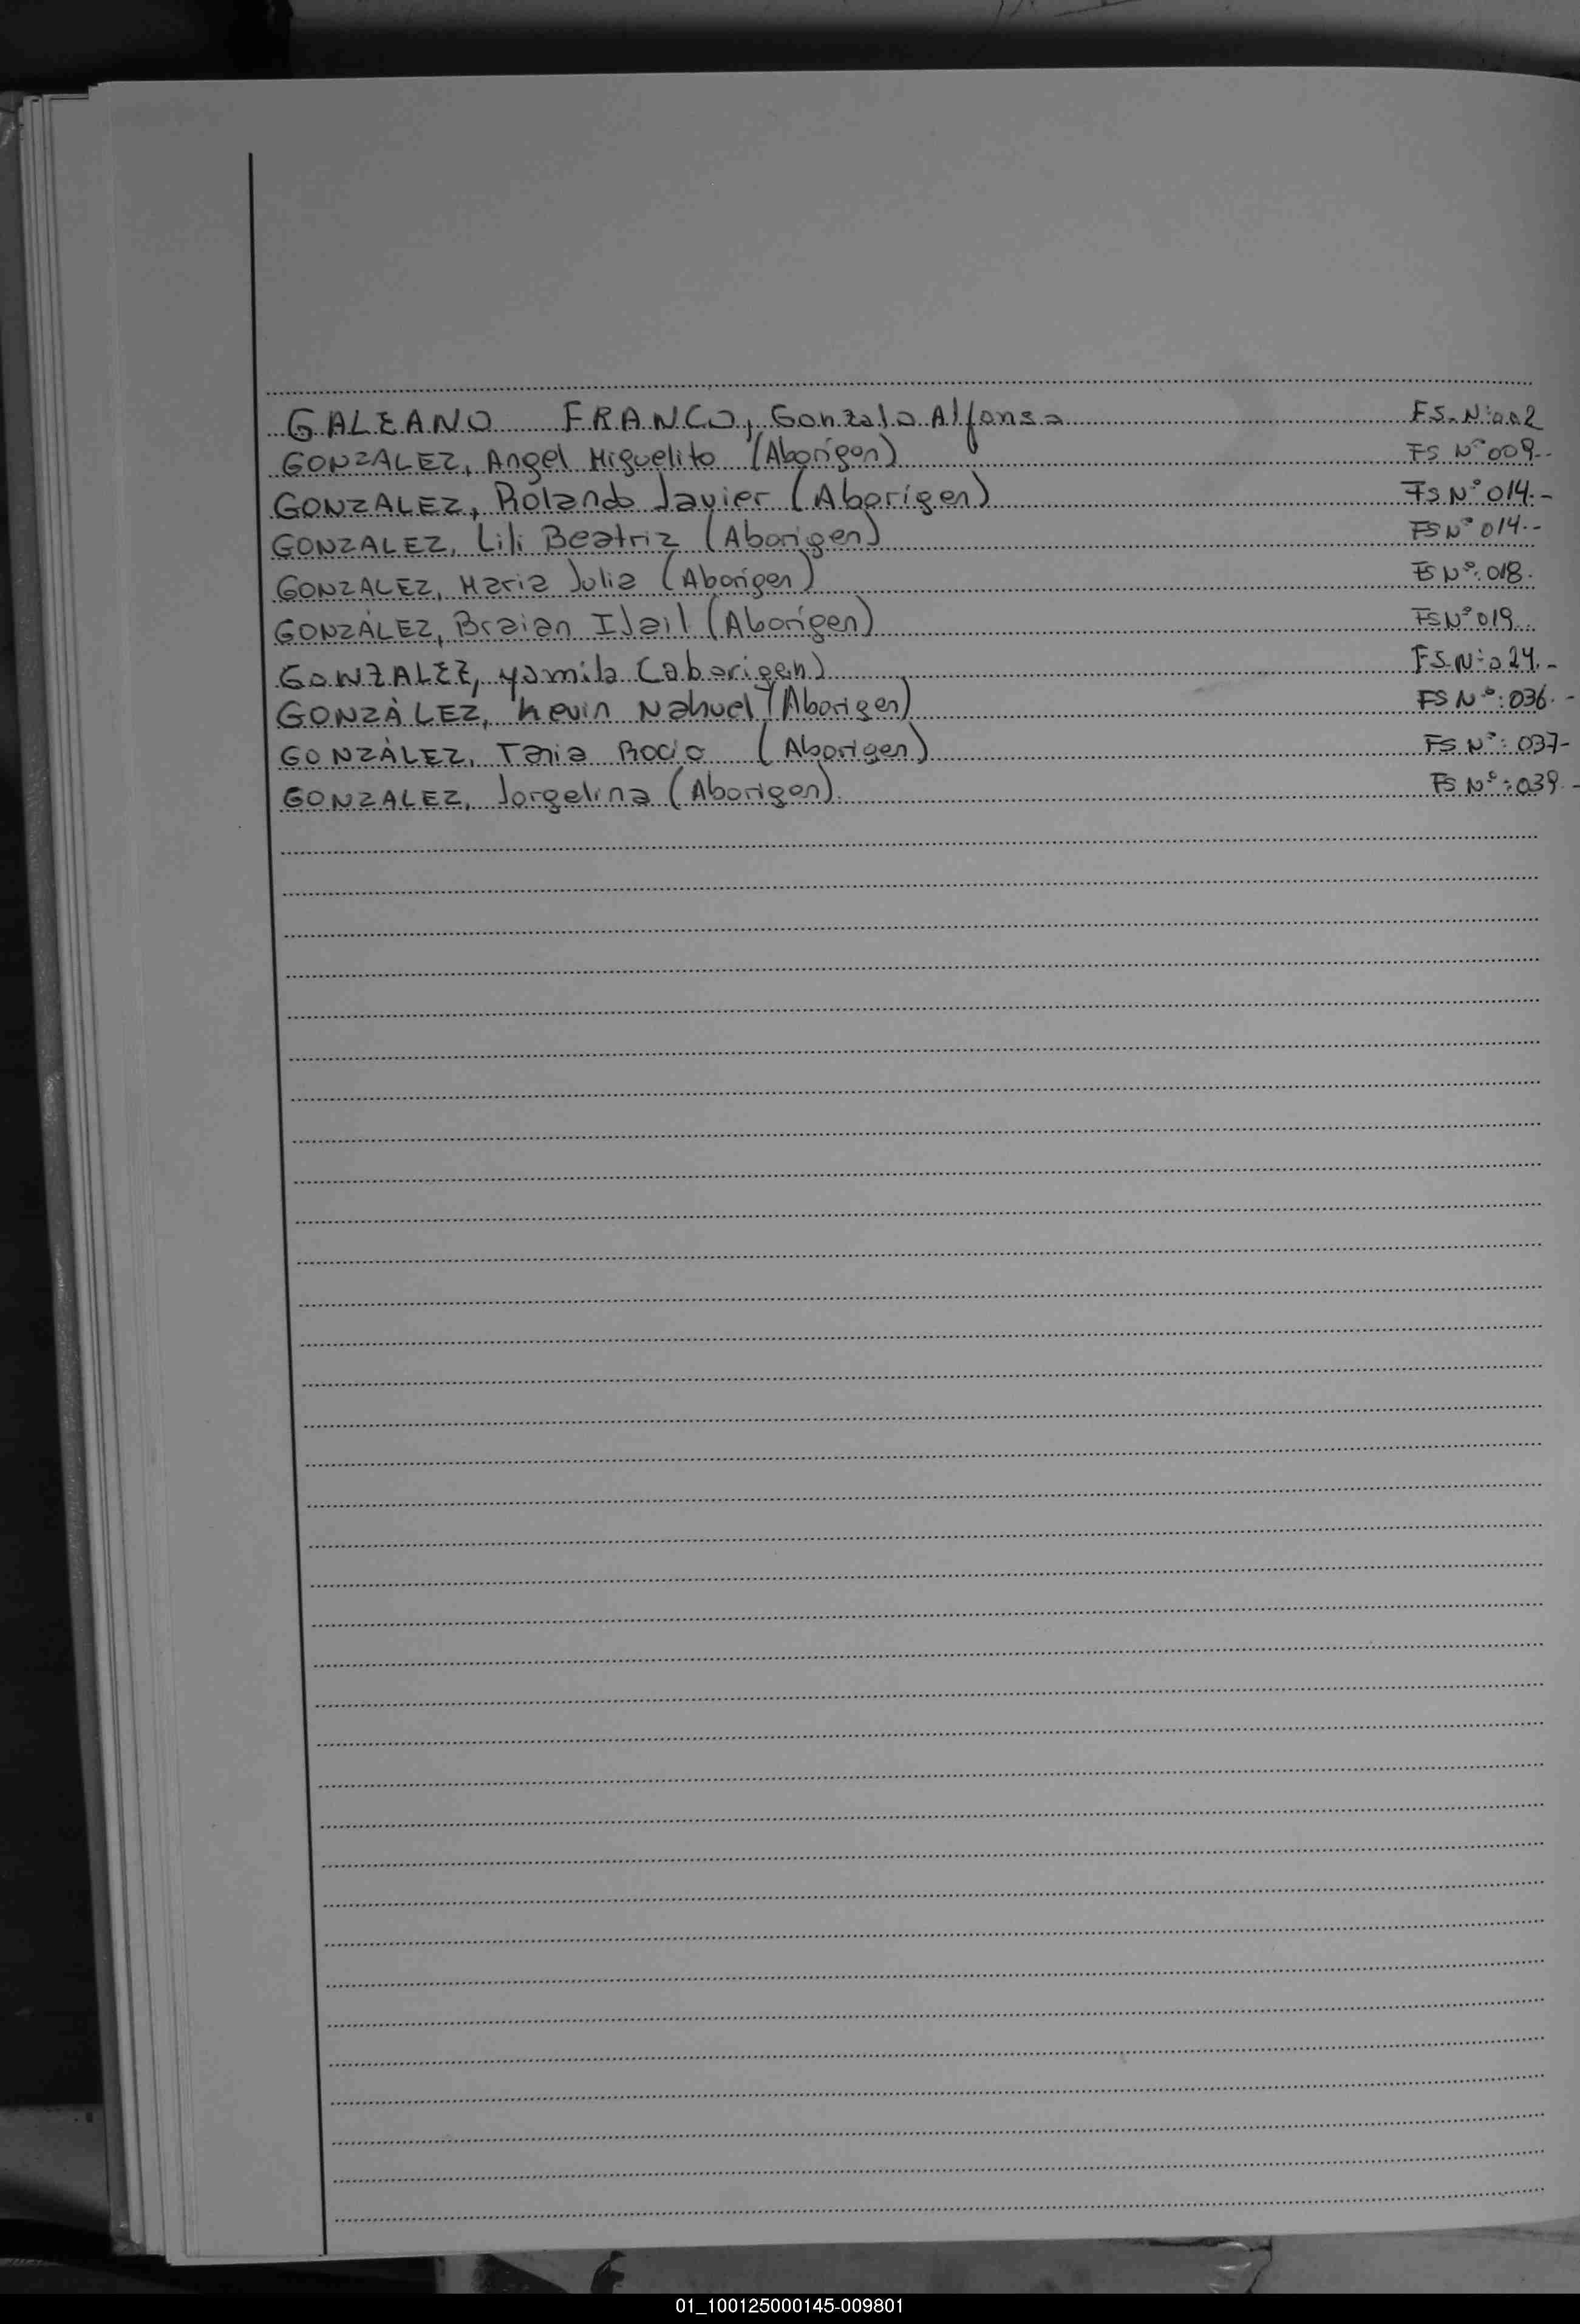 GALEANO FRANCO, Gonzalo Alfonso FS. Nº: 002
GONZALEZ, Angel Miguelito (Aborígen) FS Nº 009.-
GONZALEZ, Rolando Javier (Aborígen) FS Nº 014.-
GONZALEZ, Lili Beatriz (Aborigen) FS Nº 014.-
GONZALEZ, Maria Julia (Aborígen) FS Nº: 018.
GONZÁLEZ, Braian Isail (Aborígen) FS Nº 019.
GONZALEZ, yamila (aborigen) FS. Nº: 024.-
GONZÀLEZ, Kevin Nahuel (Aborigen) FS Nº: 036.-
GONZÀLEZ, Tania Rocio (Aborigen) FS Nº: 037-
GONZALEZ, Jorgelina (Aborigen). FS Nº: 039.-
01_100125000145-009801